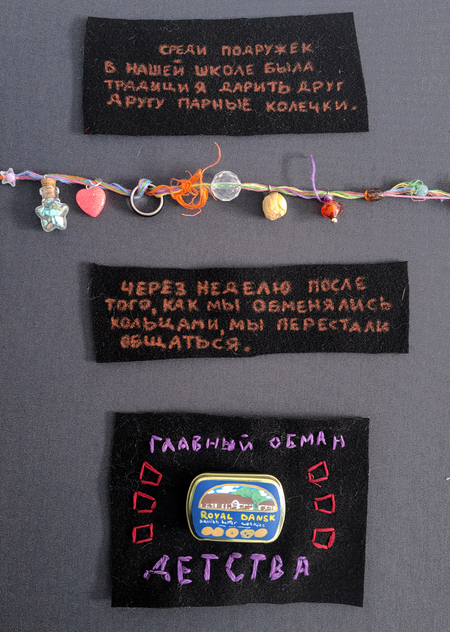 СРЕДИ ПОДРУЖЕК
В НАШЕЙ ШКОЛЕ БЫЛА
ТРАДИЦИЯ ДАРИТЬ ДРУГ
ДРУГУ ПАРНЫЕ КОЛЕЧКИ.
ЧЕРЕЗ НЕДЕЛЮ ПОСЛЕ
ТОГО, КАК МЫ ОБМЕНЯЛИСЬ
КОЛЬЦАМИ, МЫ ПЕРЕСТАЛИ
ОБЩАТЬСЯ.
ГЛАВНЫЙ ОБМАН
ROYAL DANSK
DANISH BUTTER COOKIES
ДЕТСТВА